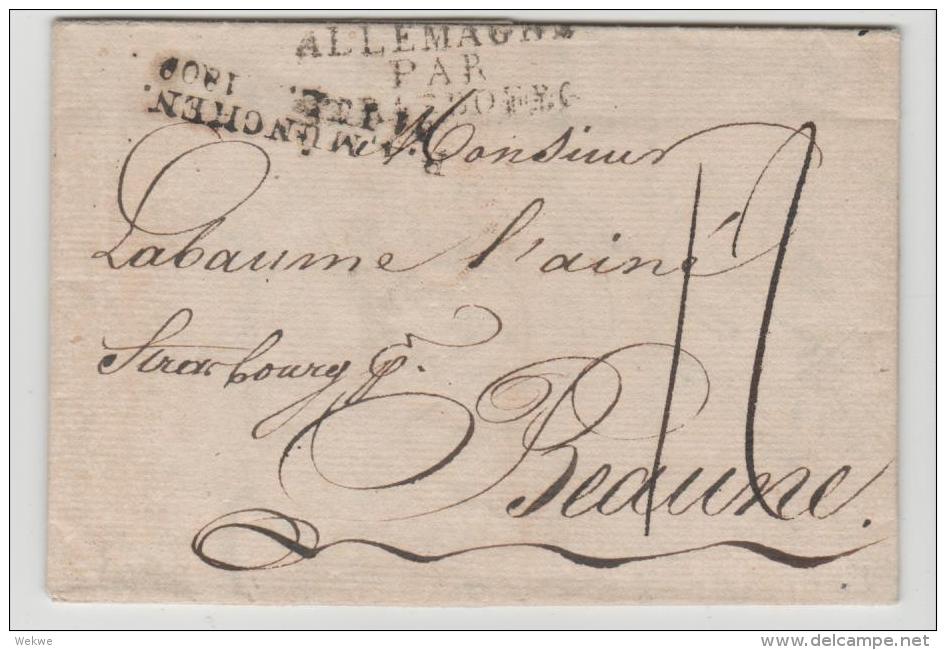 ALLEMAGNE
PAR
STRASBOURG
R. 4.
MÜNCHEN.
1809
Monsieur
Labaume l'ainé
Strasbourg
Beaune.
Wekwe
www.delcampe.net